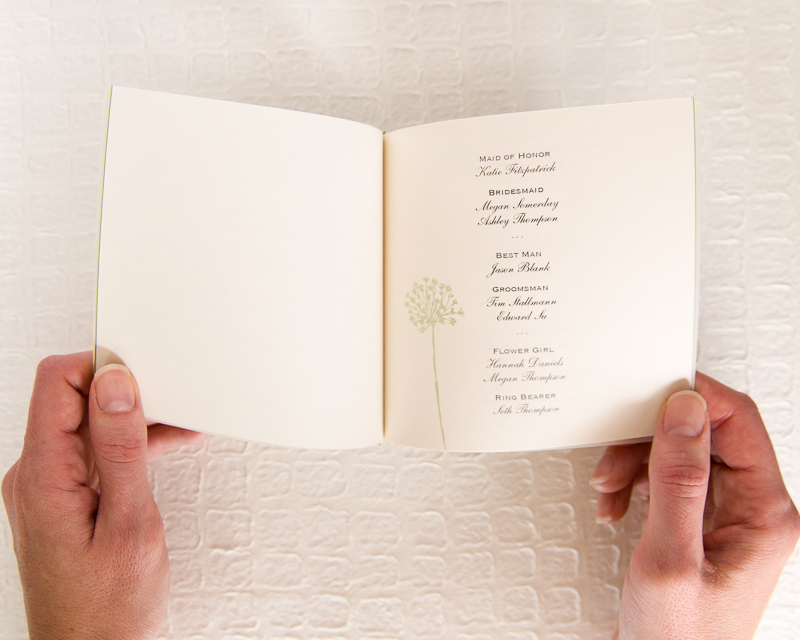 Maid of Honor
Katie Fitzpatrick
Bridesmaid
Megan Somerday
Ashley Thompson
...
Best Man
Jason Blank
Groomsman
Tim Stallmann
Edward Su
...
Flower Girl
Hannah Daniels
Megan Thompson
Ring Bearer
Seth Thompson